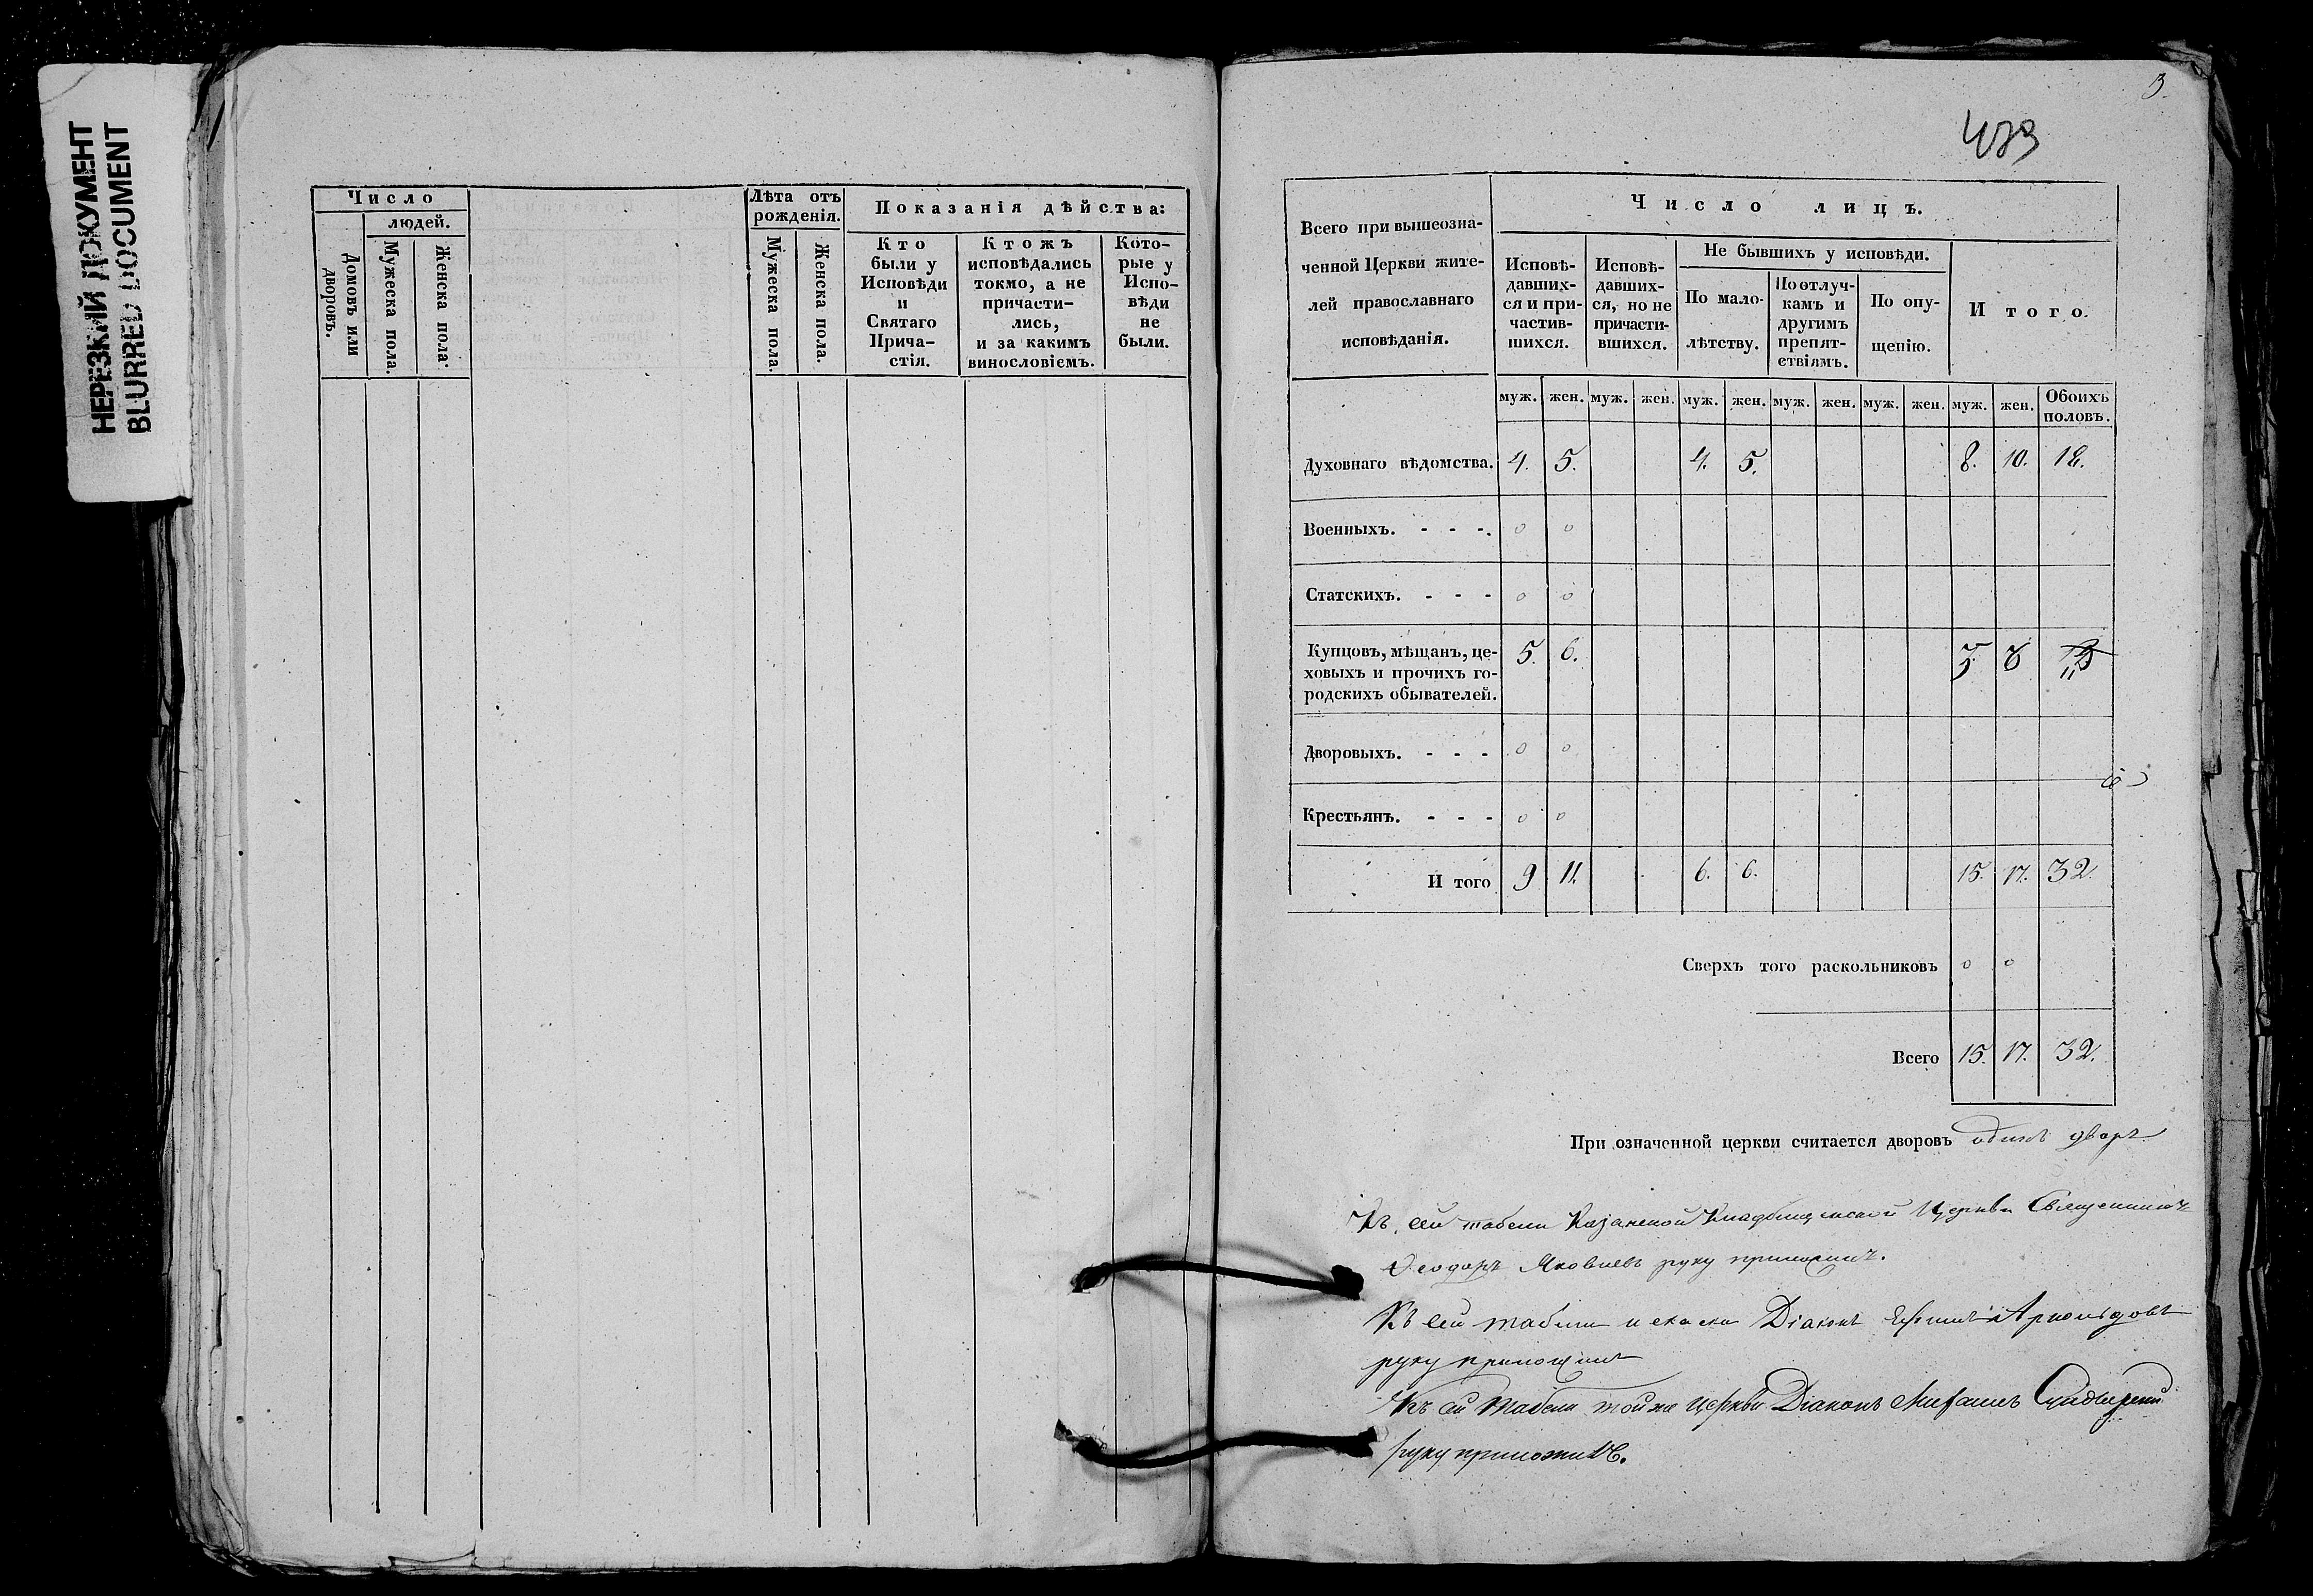 НЕРЕЗКИЙ ДОКУМЕНТ
BLURRED DOCUMENT
Число
людей.
Домовъ или дворовъ.
Мужеска пола.
Женска пола.
Лѣта отъ
рожденія.
Мужеска пола.
Женска пола.
Показанія дѣйства:
Кто
были у
Исповѣди
и
Святаго
Прича-
стія.
Ктожъ
исповѣдались
токмо, а не
причасти-
лись,
и за какимъ
винословіемъ.
Кото-
рые у
Испо-
вѣди
не
были.
3.
Всего при вышеозна-
ченной Церкви жите-
лей православнаго
исповѣданія.
Число лицъ.
Исповѣ-
давших-
ся и при-
частив-
шихся.
Исповѣ-
давших-
ся, но не
причасти-
вшихся.
Не бывшихъ у исповѣди.
По мало-
лѣтству.
По отлуч-
камъ и
другимъ
препят-
ствіямъ.
По опу-
щенію.
И того.
муж. жен. муж. жен. муж. жен. муж. жен. муж. жен. муж. жен. Обоихъ
половъ.
Духовнаго вѣдомства. 4. 5. 4. 5. 8. 10. 18.
Военныхъ. - - -. 0 0
Статскихъ. - - - 0 0
Купцовъ, мѣщанъ, це- 5. 6.
ховыхъ и прочихъ го-
родскихъ обывателей.
Дворовыхъ. - - - 0 0
Крестьянъ. - - - 0 0
И того 9 11. 6. 6. 15. 17. 32.
Сверхъ того раскольниковъ 0 0
Всего 15. 17. 32.
При означенной церкви считается дворовъ одинъ дворъ
Къ сей табели Казанской Кладбищенской Церкви Священникъ
Ѳеодоръ Яковлевъ руку приложилъ.
Къ сей табели Діаконъ
руку приложилъ
Къ сей табели той же Церкви Діаконъ Михаилъ
руку приложилъ.